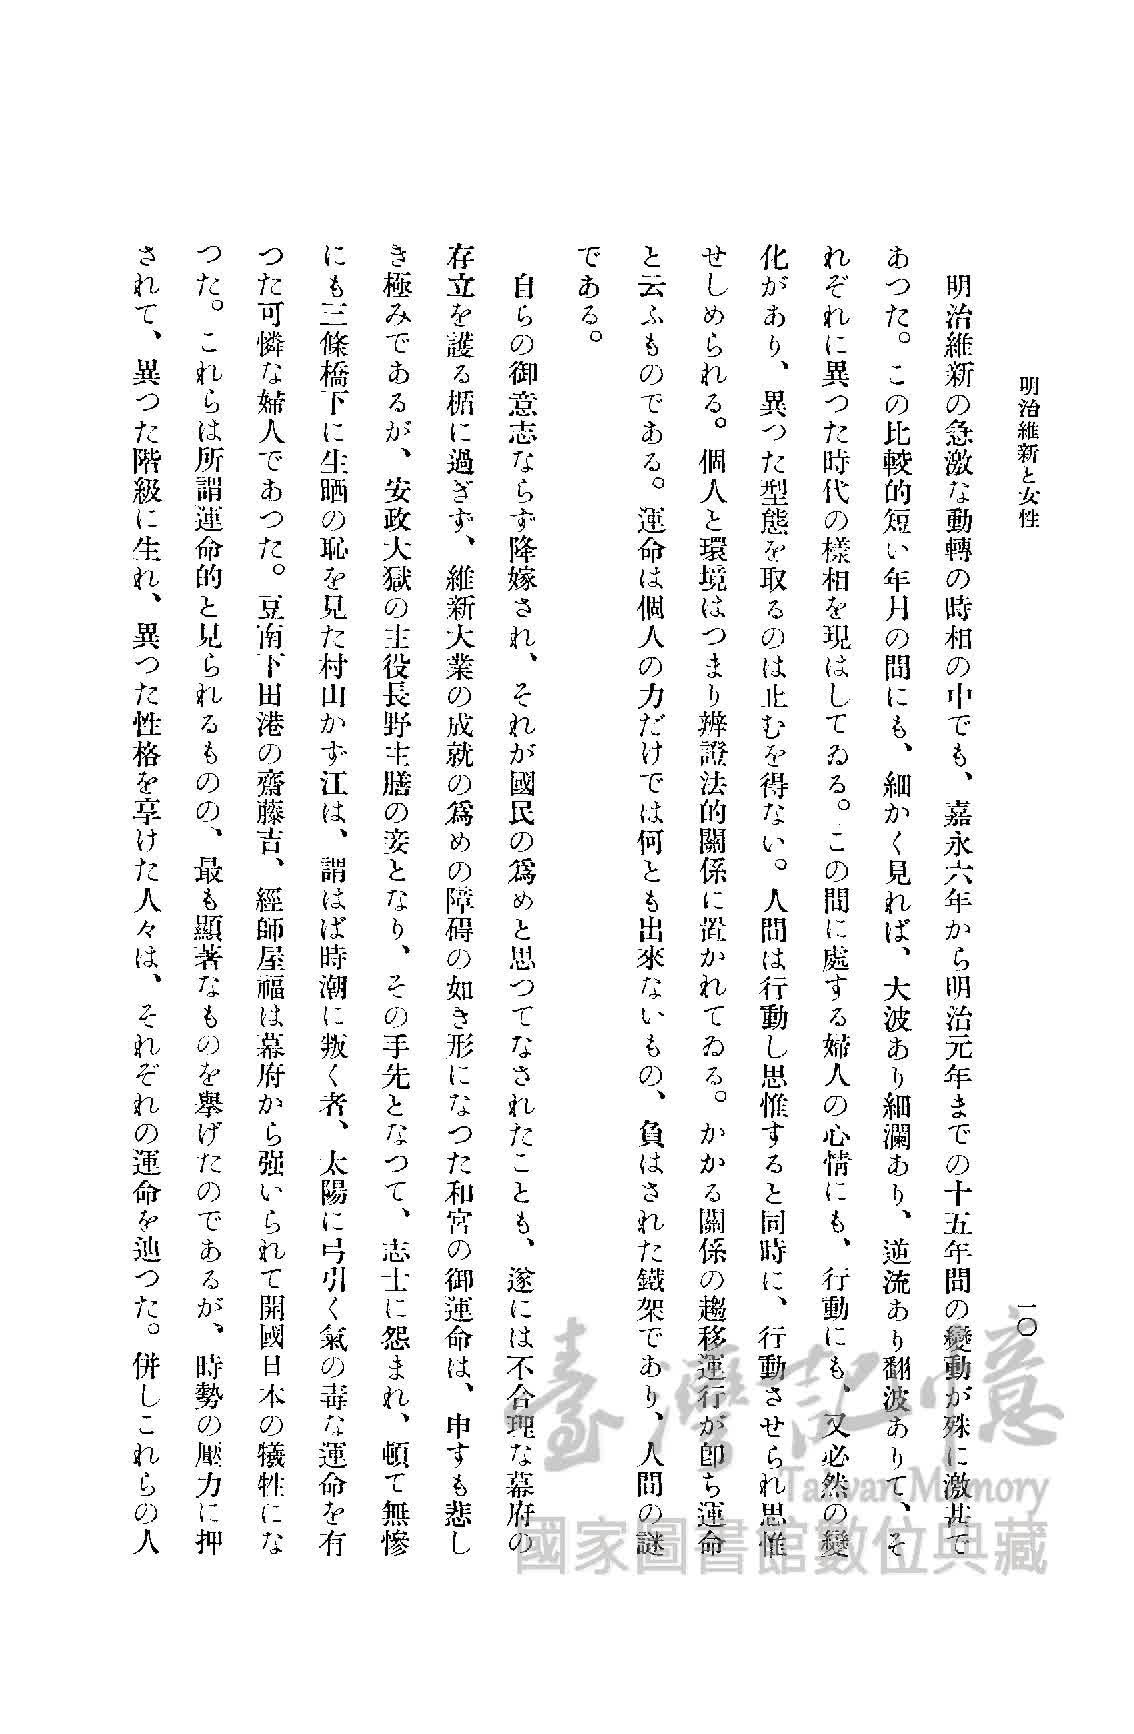 明治維新と女性
一〇
明治維新の急激な動轉の時相の中でも、嘉永六年から明治元年までの十五年間の變動が殊に激甚で
あつた。この比較的短い年月の間にも、細かく見れば、大波あり細瀾あり、逆流あり翻波ありて、そ
れぞれに異つた時代の樣相を現はしてゐる。この間に處する婦人の心情にも、行動にも、又必然の變
化があり、異つた型態を取るのは止むを得ない。人間は行動し思惟すると同時に、行動させられ思惟
せしめられる。個人と環境はつまり辨證法的關係に置かれてゐる。かかる關係の趨移運行が卽ち運命
と云ふものである。運命は個人の力だけでは何とも出來ないもの、負はされた鐵架であり、人間の謎
である。
自らの御意志ならず降嫁され、それが國民の爲めと思つてなされたことも、遂には不合理な幕府の
存立を護る楯に過ぎず、維新大業の成就の爲めの障碍の如き形になつた和宮の御運命は、申すも悲し
き極みであるが、安政大獄の主役長野主膳の妾となり、その手先となつて、志士に怨まれ、頓て無慘
にも三條橋下に生晒の恥を見た村山かず江は、謂はば時潮に叛く者、太陽に弓引く氣の毒な運命を有
つた可憐な婦人であつた。豆南下田港の齋藤吉、經師屋福は幕府から强いられて開國日本の犧牲にな
つた。これらは所謂運命的と見られるものの、最も顯著なものを擧げたのであるが、時勢の壓力に押
されて、異つた階級に生れ、異つた性格を享けた人々は、それぞれの運命を辿つた。併しこれらの人
臺灣記憶
Taiwan Memory
國家圖書館數位典藏